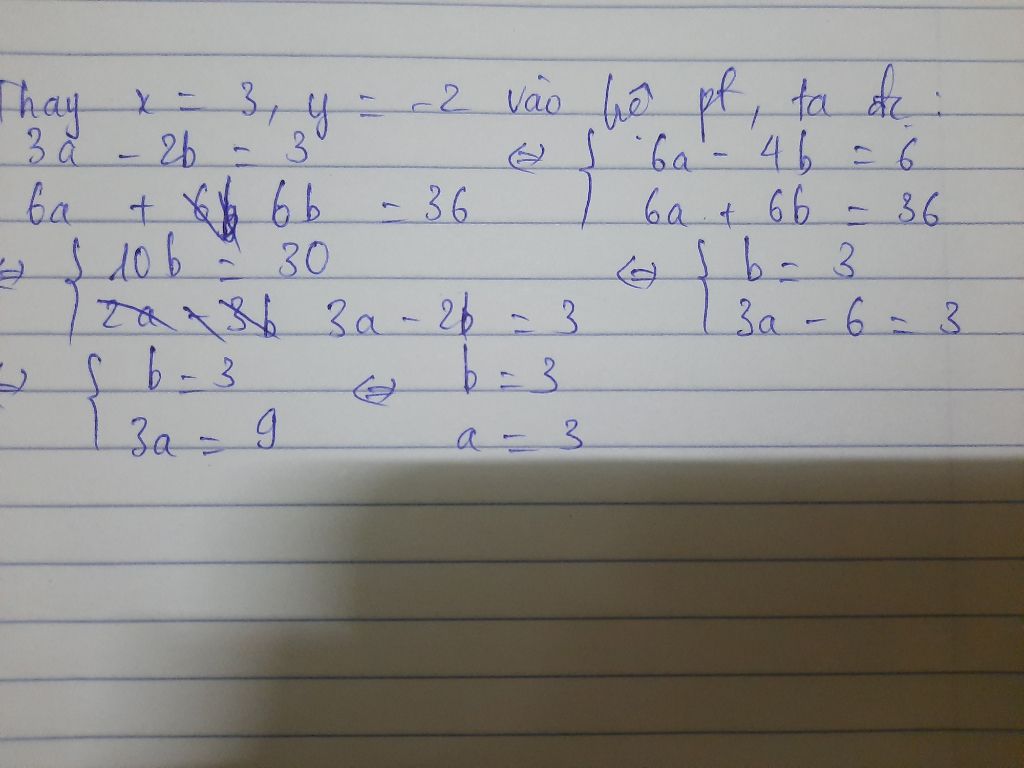 Thay x = 3, y = -2 vào hệ pt, ta đc :
3a - 2b = 3 ⇔ { 6a - 4b = 6
6a + 6b 6b = 36 6a + 6b = 36
⇔ { 10b = 30 ⇔ { b = 3
2a - 3b 3a - 2b = 3 3a - 6 = 3
⇔ { b = 3 ⇔ b = 3
3a = 9 a = 3